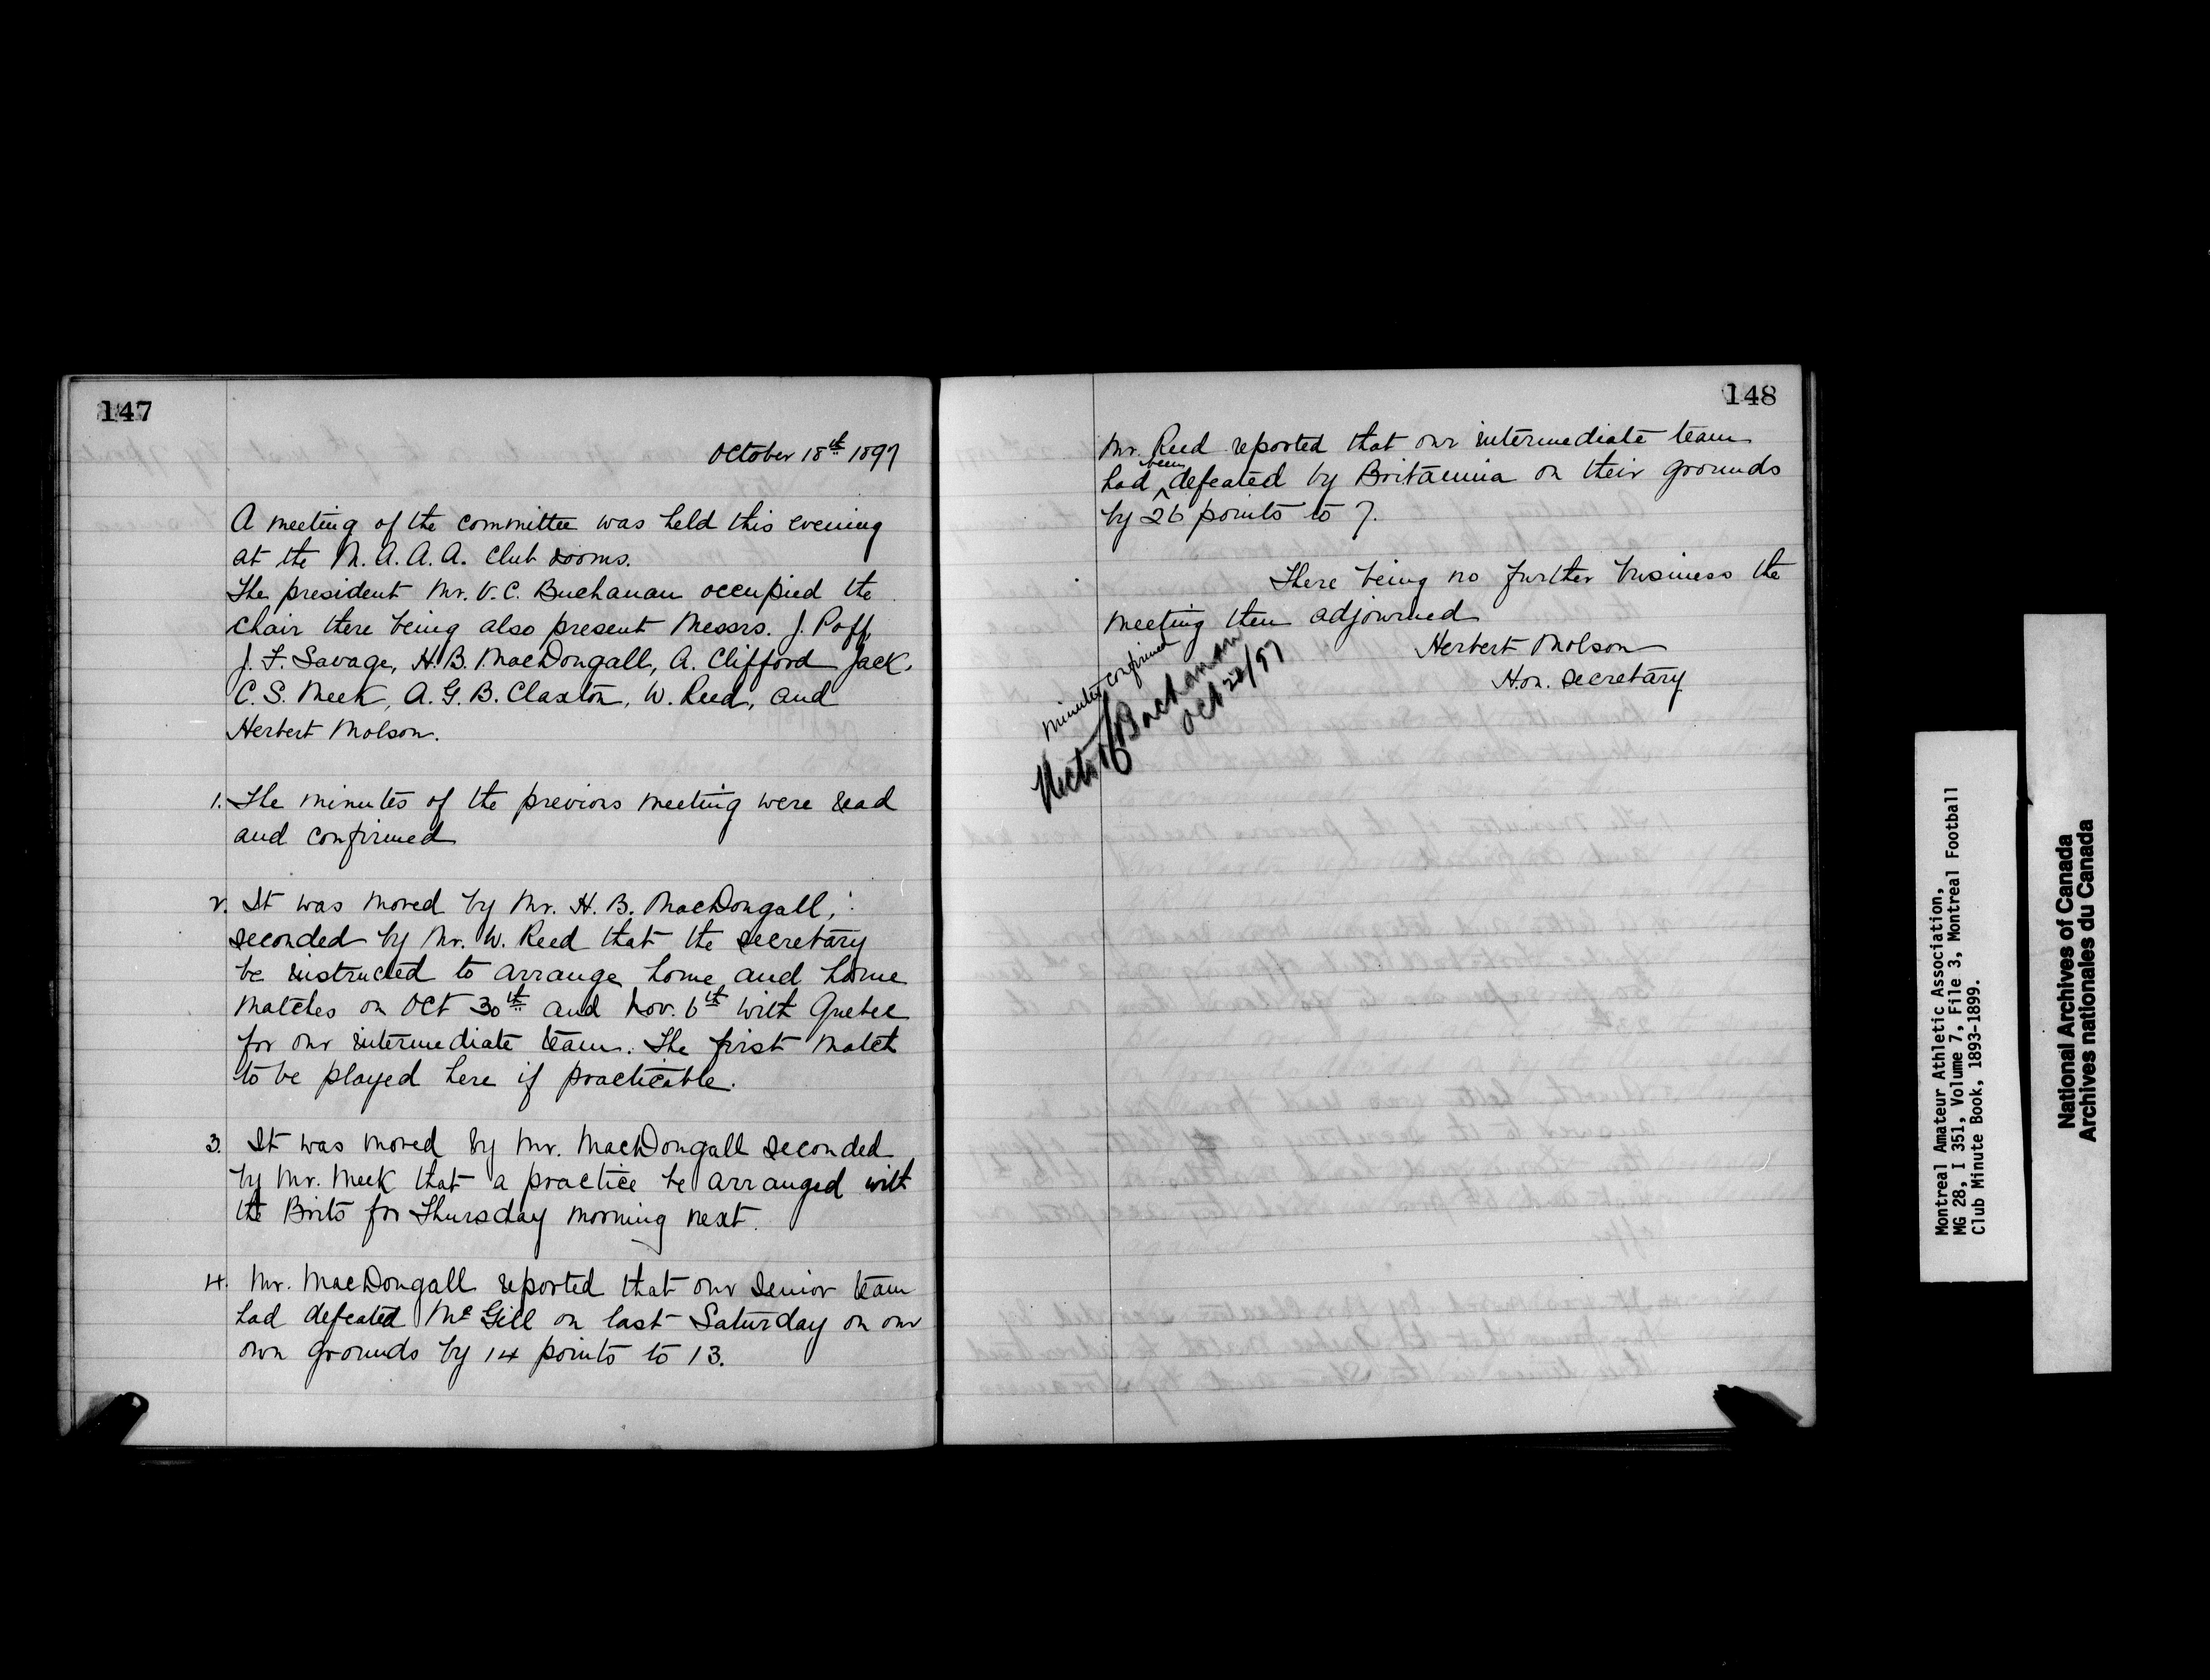 147
October 18th 1897
A meeting of the committee was held this evening
at the M.A.A.A. Club rooms.
The president Mr. V.C. Buchanan occupied the
chair there being also present Messrs. J. Poff,
J. F. Savage, H.B. MacDougall, A. Clifford Jack,
C.S. Meek, A.G.B. Claxton, W. Reed, and
Herbert Molson.
1. The minutes of the previous meeting were read
and confirmed
2. It was moved by Mr. H. B. MacDougall,
seconded by Mr. W. Reed that the secretary
be instructed to arrange home and home
matches on Oct 30th and Nov. 6th with Quebec
for our intermediate team. The first match
to be played here if practicable.
3. It was moved by Mr. MacDougall seconded
by Mr. Meek that a practice be arranged with
the Brits for Thursday morning next.
4. Mr. MacDougall reported that our Senior team
had defeated McGill on last Saturday on our
own grounds by 14 points to 13.
148
Mr. Reed reported that our intermediate team
had been defeated by Britannia on their grounds
by 26 points to 7.
There being no further business the
meeting then adjourned
Herbert Molson
Hon. Secretary
Minutes confirmed
Victor Buchanan
Oct 22/97
Montreal Amateur Athletic Association,
MG 28, I 351, Volume 7, File 3, Montreal Football
Club Minute Book, 1893-1899.
National Archives of Canada
Archives nationales du Canada